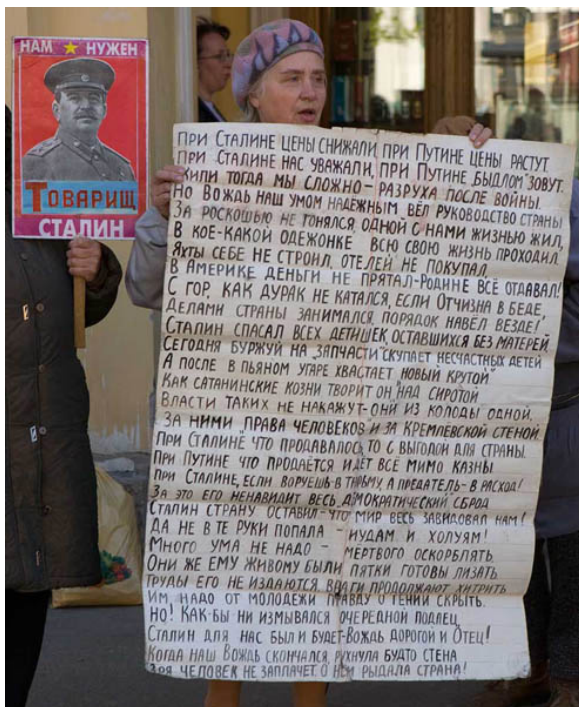 НАМ НУЖЕН
ТОВАРИЩ
СТАЛИН
ПРИ СТАЛИНЕ ЦЕНЫ СНИЖАЛИ, ПРИ ПУТИНЕ ЦЕНЫ РАСТУТ.
ПРИ СТАЛИНЕ НАС УВАЖАЛИ, ПРИ ПУТИНЕ „БЫДЛОМ" ЗОВУТ.
ЖИЛИ ТОГДА МЫ СЛОЖНО - РАЗРУХА ПОСЛЕ ВОЙНЫ.
НО ВОЖДЬ НАШ УМОМ НАДЁЖНЫМ ВЁЛ РУКОВОДСТВО СТРАНЫ
ЗА РОСКОШЬЮ НЕ ГОНЯЛСЯ, ОДНОЙ С НАМИ ЖИЗНЬЮ ЖИЛ,
В КОЕ-КАКОЙ ОДЕЖОНКЕ ВСЮ СВОЮ ЖИЗНЬ ПРОХОДИЛ.
ЯХТЫ СЕБЕ НЕ СТРОИЛ, ОТЕЛЕЙ НЕ ПОКУПАЛ,
В АМЕРИКЕ ДЕНЬГИ НЕ ПРЯТАЛ-РОДИНЕ ВСЁ ОТДАВАЛ!
С ГОР, КАК ДУРАК НЕ КАТАЛСЯ, ЕСЛИ ОТЧИЗНА В БЕДЕ,
ДЕЛАМИ СТРАНЫ ЗАНИМАЛСЯ, ПОРЯДОК НАВЁЛ ВЕЗДЕ!
СТАЛИН СПАСАЛ ВСЕХ ДЕТИШЕК, ОСТАВШИХСЯ БЕЗ МАТЕРЕЙ.
СЕГОДНЯ БУРЖУЙ НА „ЗАПЧАСТИ" СКУПАЕТ НЕСЧАСТНЫХ ДЕТЕЙ
А ПОСЛЕ В ПЬЯНОМ УГАРЕ ХВАСТАЕТ „НОВЫЙ КРУТОЙ"
КАК САТАНИНСКИЕ КОЗНИ ТВОРИТ ОН НАД СИРОТОЙ
ВЛАСТИ ТАКИХ НЕ НАКАЖУТ-ОНИ ИЗ КОЛОДЫ ОДНОЙ,
ЗА НИМИ "ПРАВА ЧЕЛОВЕКОВ" И ЗА КРЕМЛЕВСКОЙ СТЕНОЙ
ПРИ СТАЛИНЕ ЧТО ПРОДАВАЛОСЬ, ТО С ВЫГОДОЙ ДЛЯ СТРАНЫ.
ПРИ ПУТИНЕ ЧТО ПРОДАЁТСЯ ИДЁТ ВСЁ МИМО КАЗНЫ
ПРИ СТАЛИНЕ, ЕСЛИ ВОРУЕШЬ-В ТЮРЬМУ, А ПРЕДАТЕЛЬ-В РАСХОД!
ЗА ЭТО ЕГО НЕНАВИДИТ ВЕСЬ „ДЕМОКРАТИЧЕСКИЙ" СБРОД
СТАЛИН СТРАНУ ОСТАВИЛ-ЧТО МИР ВЕСЬ ЗАВИДОВАЛ НАМ!
ДА НЕ В ТЕ РУКИ ПОПАЛА - ИУДАМ И ХОЛУЯМ!
МНОГО УМА НЕ НАДО - МЁРТВОГО ОСКОРБЛЯТЬ.
ОНИ ЖЕ ЕМУ ЖИВОМУ БЫЛИ ПЯТКИ ГОТОВЫ ЛИЗАТЬ
ТРУДЫ ЕГО НЕ ИЗДАЮТСЯ, ВЛАСТИ ПРОДОЛЖАЮТ ХИТРИТЬ
ИМ НАДО ОТ МОЛОДЕЖИ ПРАВДУ О ГЕНИИ СКРЫТЬ.
НО! КАК-БЫ НИ ИЗМЫВАЛСЯ ОЧЕРЕДНОЙ ПОДЛЕЦ
СТАЛИН ДЛЯ НАС БЫЛ И БУДЕТ-ВОЖДЬ ДОРОГОЙ И ОТЕЦ!
КОГДА НАШ ВОЖДЬ СКОНЧАЛСЯ, РУХНУЛА БУДТО СТЕНА
ЗРЯ ЧЕЛОВЕК НЕ ЗАПЛАЧЕТ, О НЁМ РЫДАЛА СТРАНА!